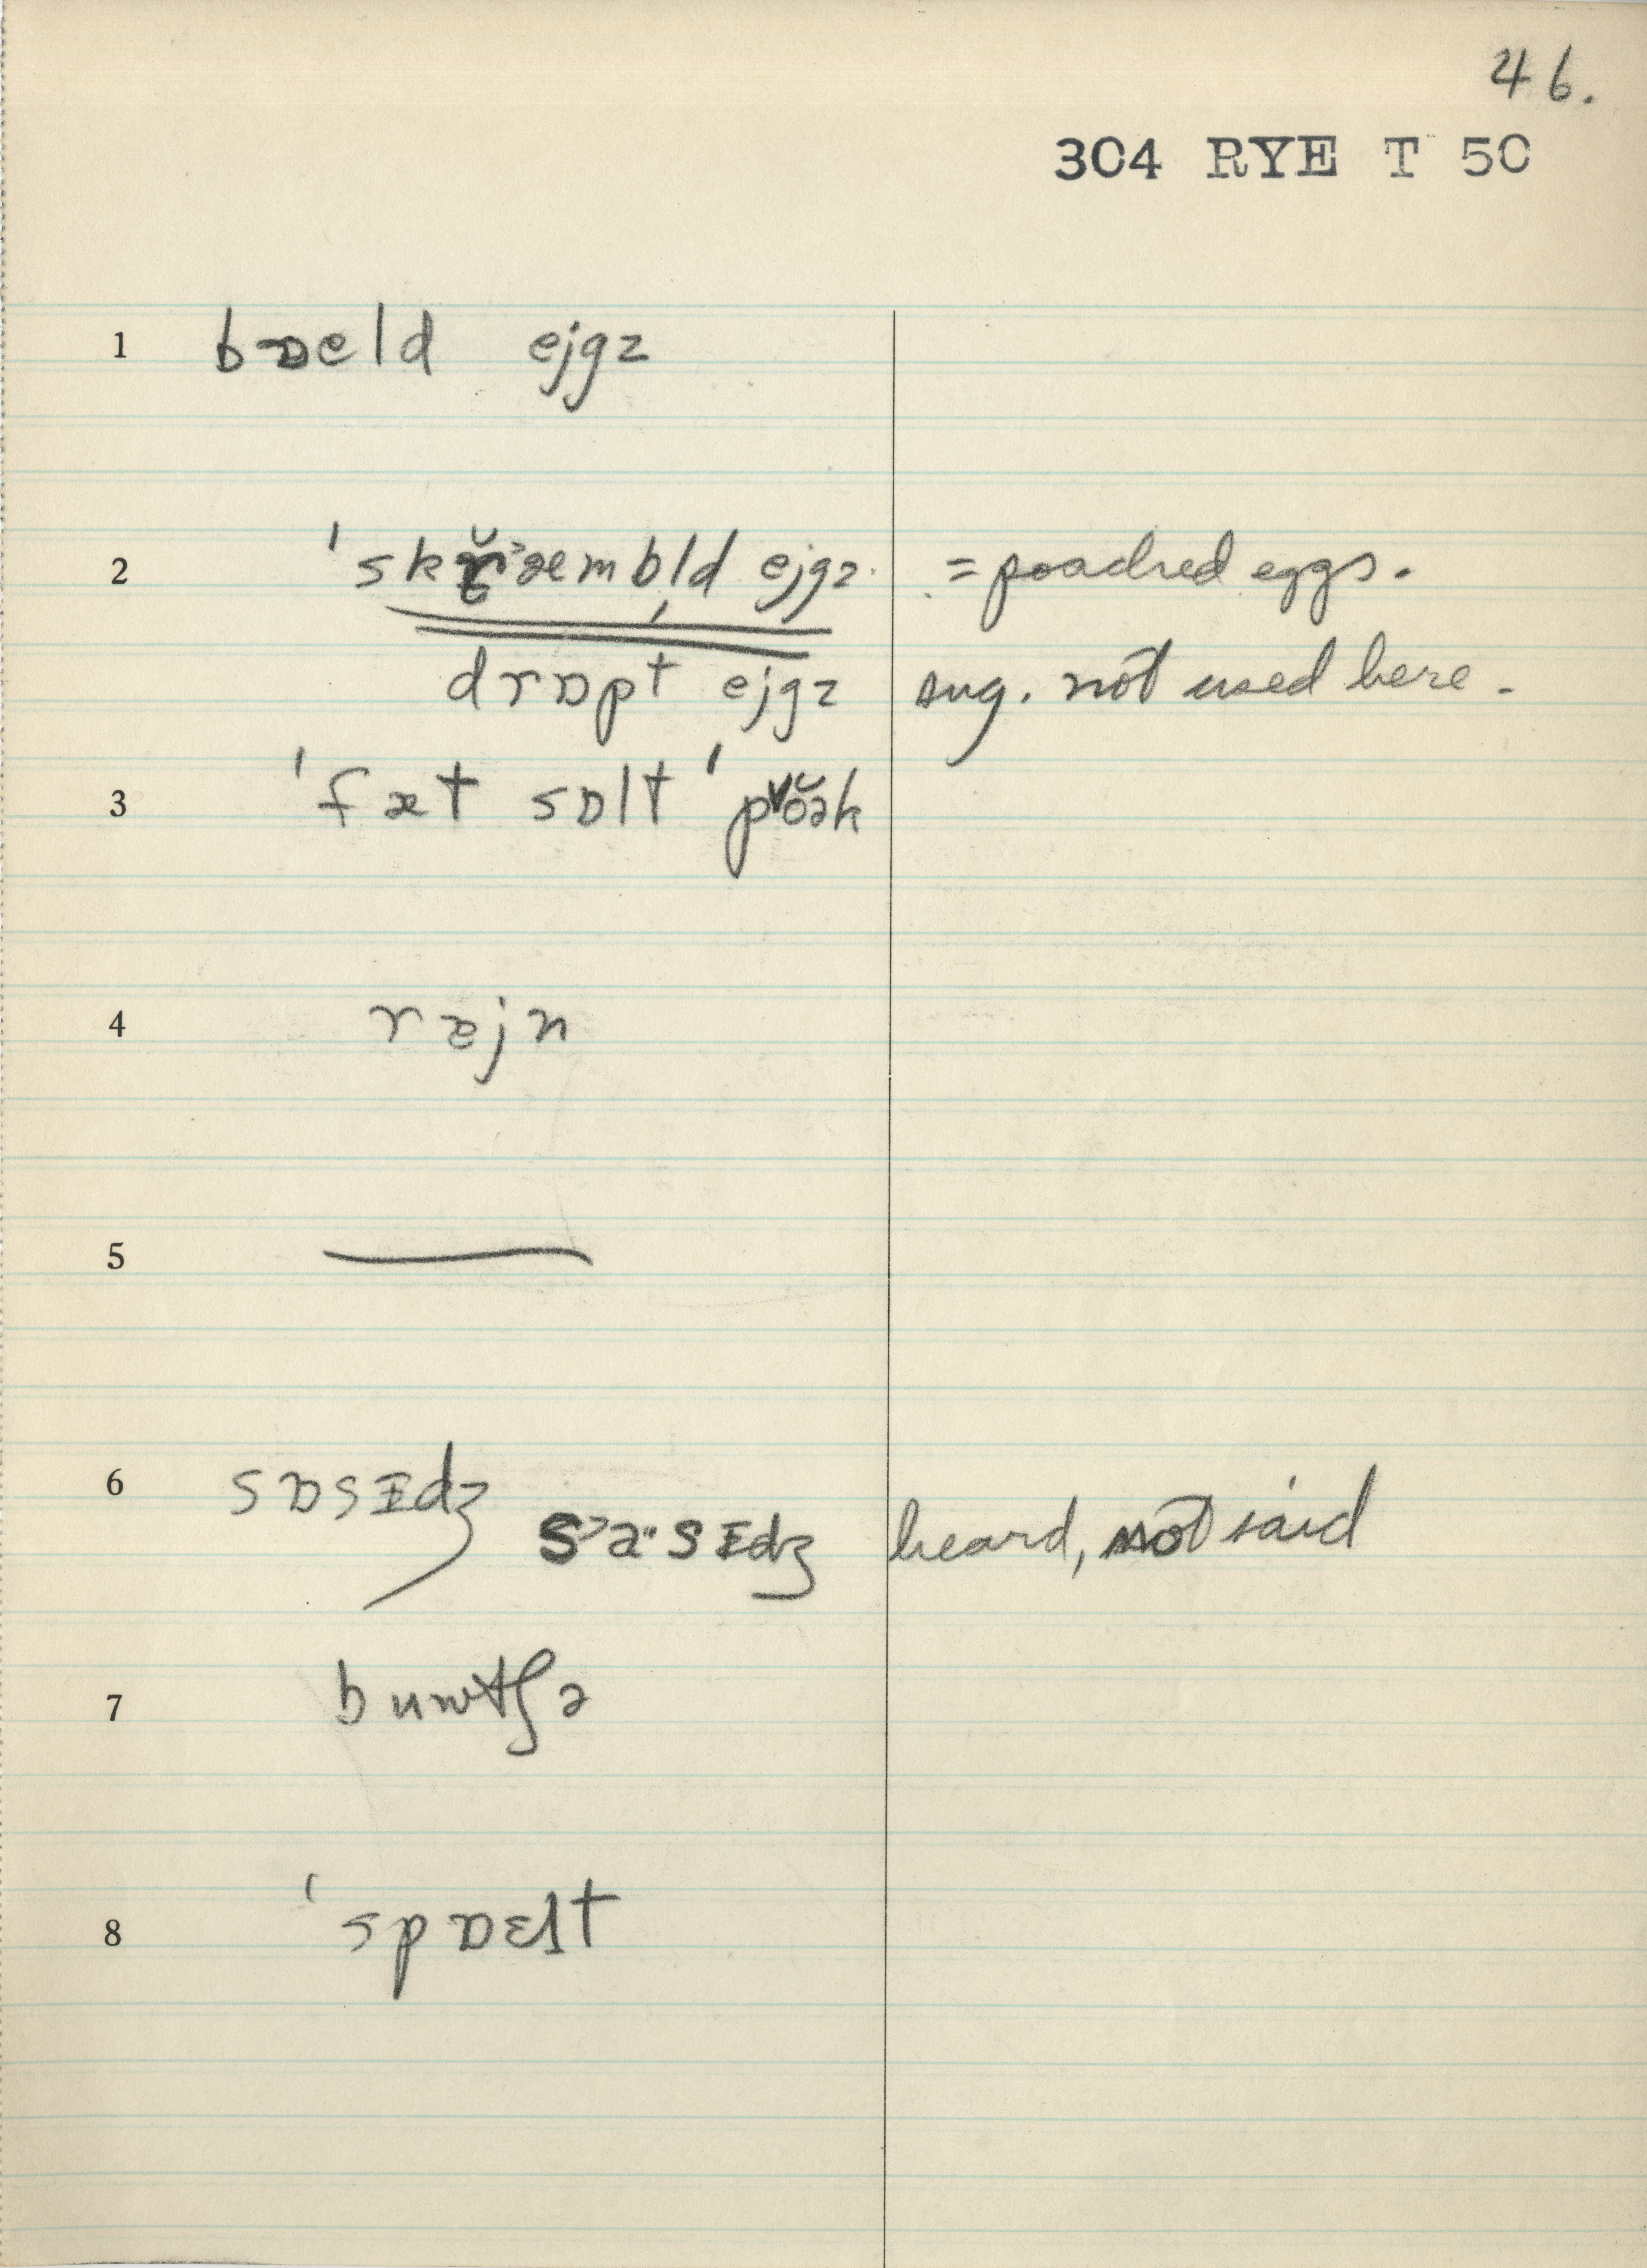 46.
304 RYE T 50
1 bɒeld ejgz
2 'skř˃æmbl̩d ejgz = poached eggs.
drɒpt ejgz sug. not used here.
3 'fæt sɒlt 'pṏək
4 ræjn
5 —
6 sɒsɪdʒ
s˃a·sɪdʒ heard, not said
7 buwtʃə
8 'spɒɛlt